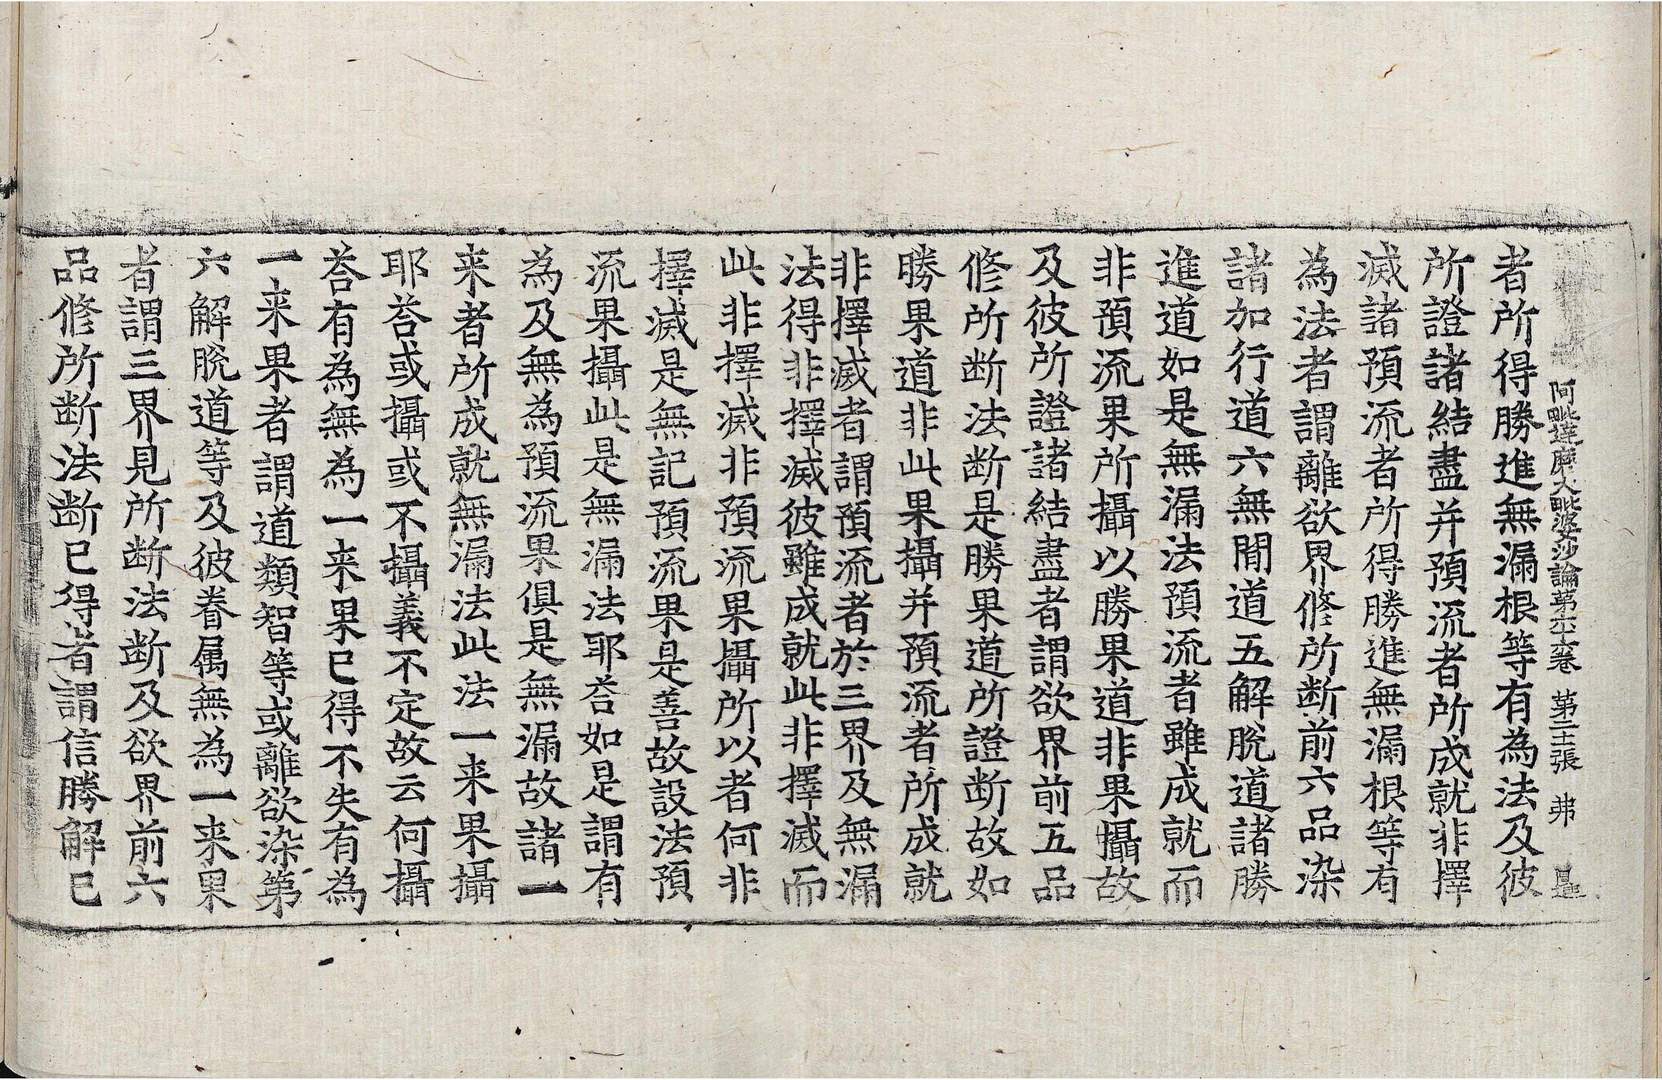 阿毗達磨大毗婆沙論第 卷 第 張 弗
者所得勝進無漏根等有為法及彼
所證諸結盡并預流者所成就非擇
滅諸預流者所得勝進無漏根等有
為法者謂離欲界修所断前六品染
諸加行道六無間道五解脫道諸勝
進道如是無漏法預流者雖成就而
非預流果所攝以勝果道非果攝故
及彼所證諸結盡者謂欲界前五品
修所断法断是勝果道所證断故如
勝果道非此果攝并預流者所成就
非擇滅者謂預流者於三界及無漏
法得非擇滅彼雖成就此非擇滅而
此非擇滅非預流果攝所以者何非
擇滅是無記預流果是善故設法預
流果攝此是無漏法耶荅如是謂有
為及無為預流果俱是無漏故諸一
来者所成就無漏法此法一来果攝
耶荅或攝或不攝義不定故云何攝
荅有為無為一来果已得不失有為
一来果者謂道類智等或離欲染第
六解脫道等及彼眷属無為一来果
者謂三界見所断法断及欲界前六
品修所断法断已得者謂信勝解已